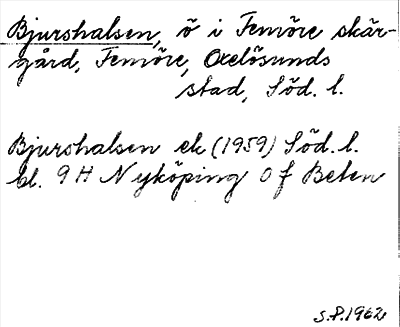 Bjurshalsen, ö i Femöre skär-
gård, Femöre, Oxelösunds
stad, Söd. l.
Bjurshalsen ek (1959) Söd. l.
bl. 9 H Nyköping 0 f Beten
S.P.1962